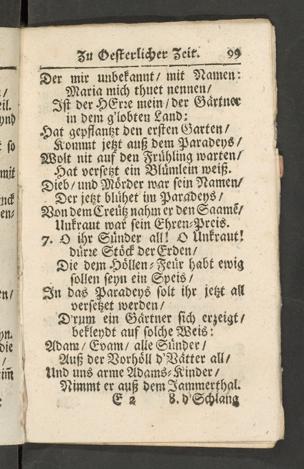 Zu Oesterlicher Zeit. 99
Der mir unbekannt/ mit Namen:
Maria mich thuet nennen/
Ist der HErꝛe mein/ der Gärtner
in dem g'lobten Land:
Hat gepflantzt den ersten Garten/
Kommt jetzt auß dem Paradeys/
Wolt nit auf den Frühling warten/
Hat versetzt ein Blümlein weiß.
Dieb/ und Mörder war sein Namen/
Der jetzt blühet im Paradeys/
Von dem Creutz nahm er den Saamē/
Unkraut war sein Ehren-Preis.
7. O ihr Sünder all! O Unkraut!
dürre Stöck der Erden/
Die dem Höllen-Feür habt ewig
sollen seyn ein Speis/
In das Paradeys solt ihr jetzt all
versetzet werden/
D'rum ein Gärtner sich erzeigt/
bekleydt auf solche Weis:
Adam/ Evam/ alle Sünder/
Auß der Vorhöll d'Vätter all/
Und uns arme Adams-Kinder/
Nimmt er auß dem Jammerthal.
E 2 8. d'Schlang